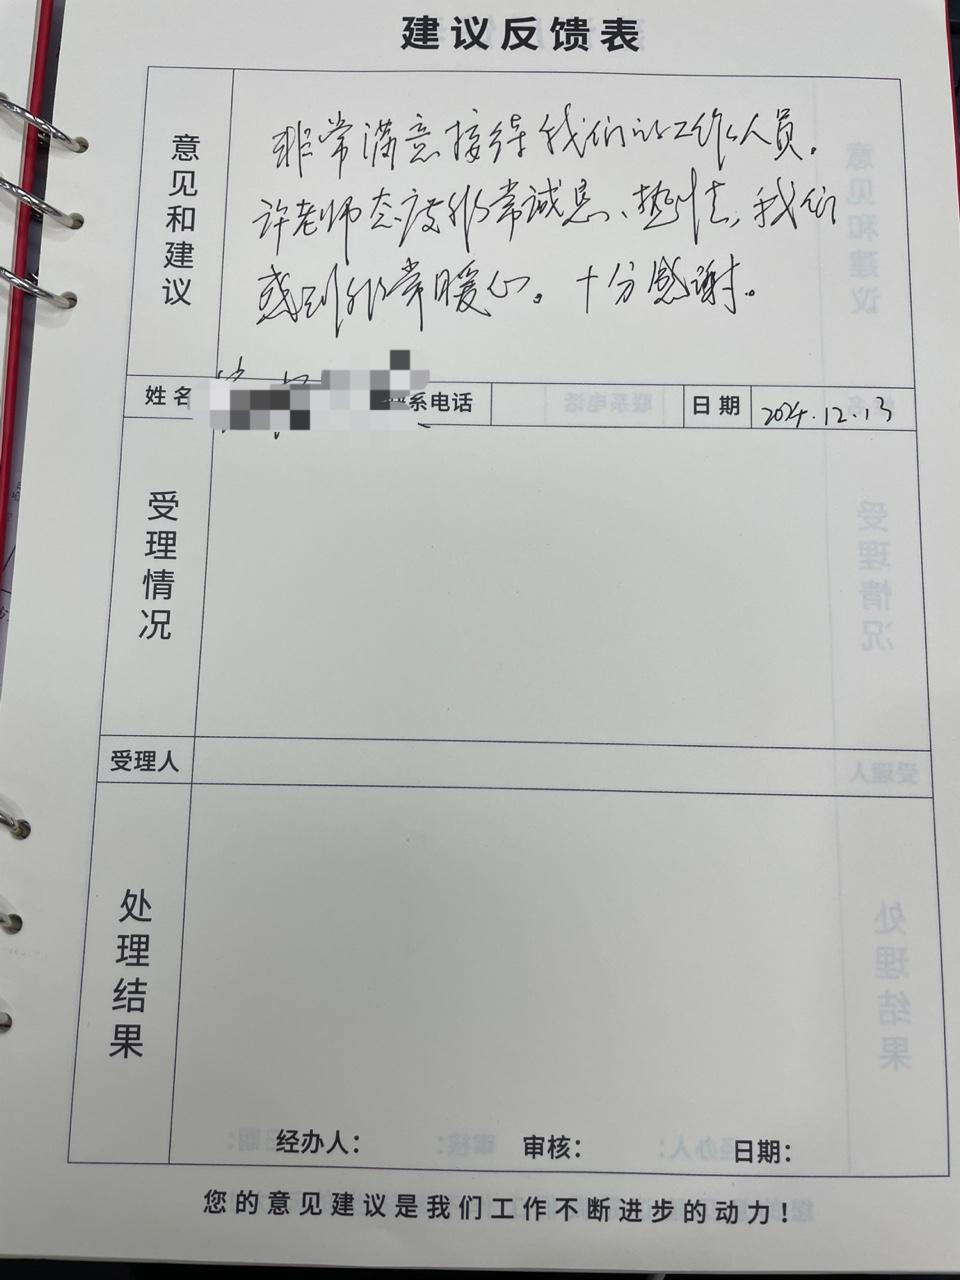 建议反馈表
意见和建议
非常满意接待我们的工作人员。
许老师态度非常诚恳、热情,我们
感到非常暖心。十分感谢。
姓名
系电话
日期
2024.12.13
受理情况
受理人
处理结果
经办人：
审核：
日期：
您的意见建议是我们工作不断进步的动力！